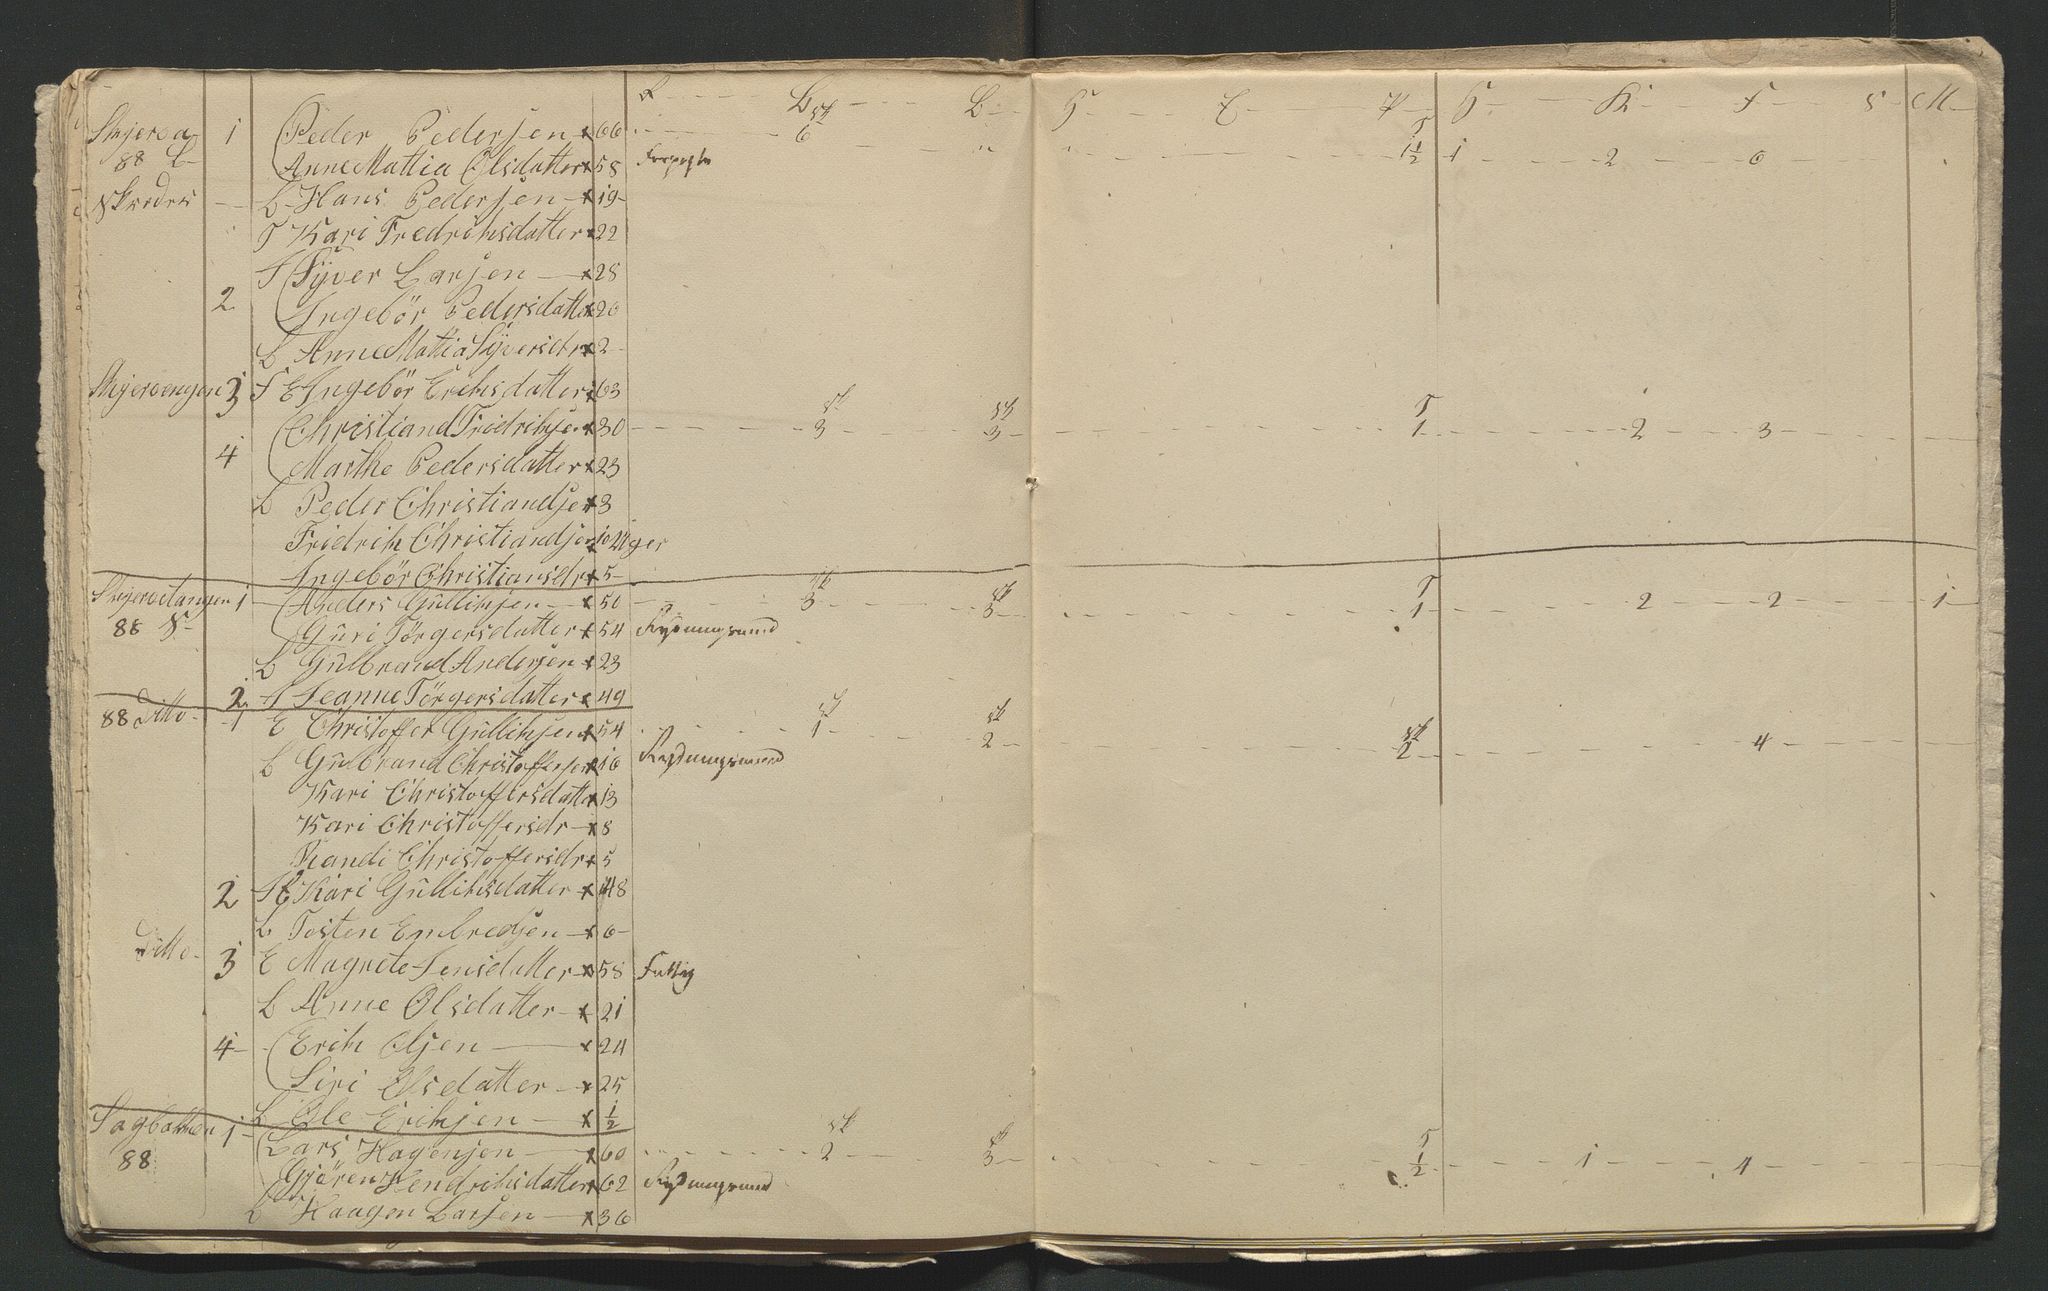 R B B H E P H K F S M
Skjeroa 1 Peder Pedersen x 66 6 T
88 L AnneMattia Olsdatter x 58 Forpagte 1½ 1 2 6
Skredes L Hans Pedersen x 19
T Kari Fredrihsdatter x 22
F Syver Larsen x 28
2 Ingebör Pedersdatter x 26
L AnneMattiaSyversdr x 2
Skjeroengen 3 F E Ingebör Erihsdatter x 63
Christiand Fridrihsen x 30 3 3 T 1 2 3
4 Marthe Pedersdatter x 23
L Peder Christiandsen x 3
Fridrih Christiandsen x 10 Uger
Ingebör Christiansdr x 5
Skjeroetangen 1 Anders Gullihsen x 50 3 3 T 1 2 2 1
88 S Guri Törgersdatter x 54 Rydningsmand
L Gulbrand Andersen x 23
2 F Jeanne Törgersdatter x 49
88 Ditto 1 E Christoffer Gullihsen x 54 1 2 2 4
L Gulbrand Christoffersen x 16 Rydningsmand
Kari Christoffersdatter x 13
Kari Christoffersdr x 8
Randi Christoffersdr x 5
2 F E Kari Gullihsdatter x 48
L Tosten Embredsen x 6
Ditto 3 E Magrete Jensdatter x 58 Fattig
L Anne Olsdatter x 21
4 Erih Olsen x 24
Siri Olsdatter x 25
L Ole Erihsen x ½
Sagbakken 1 Lars Hagensen x 60 2 3 T ½ 1 4
88 Gjören Hendrihsdatter x 62 Rydningsmand
L Haagen Larsen x 36